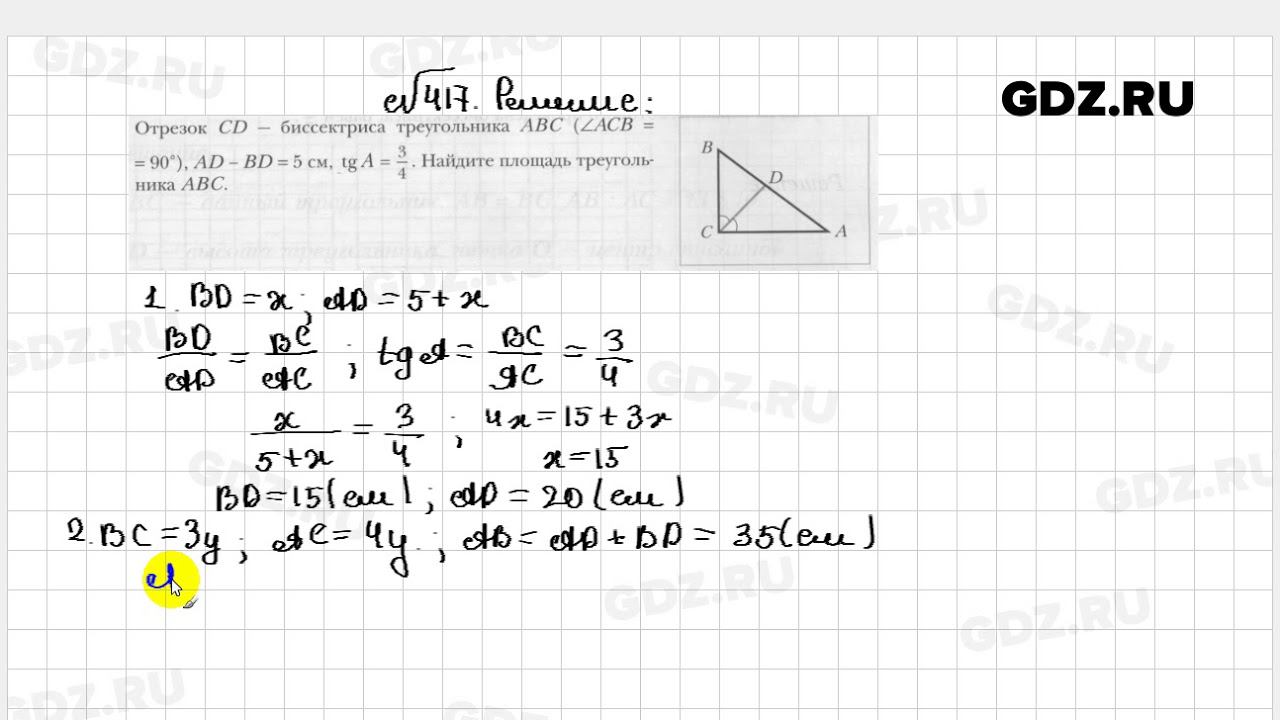 №417. Решение:
GDZ.RU
Отрезок CD – биссектриса треугольника ABC (∠ACB =
= 90°), AD – BD = 5 см, tg A = 3/4. Найдите площадь треуголь-
ника ABC.
B
D
C
A
1. BD = x; AD = 5 + x
BD/AD = BC/AC ; tg A = BC/AC = 3/4
x/(5+x) = 3/4 ; 4x = 15 + 3x
x = 15
BD = 15 (см); AD = 20 (см)
2. BC = 3y; AC = 4y; AB = AD + BD = 35 (см)